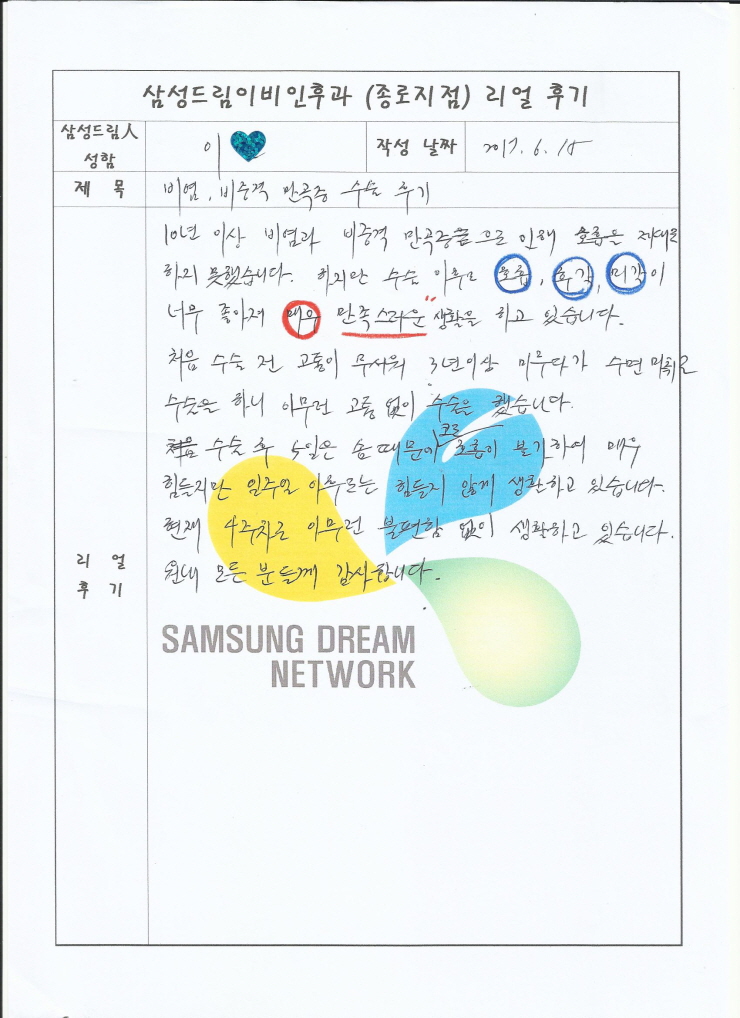 삼성드림이비인후과 (종로지점) 리얼 후기
삼성드림人 성함
이
작성 날짜
2017. 6. 15
제 목
비염, 비중격 만곡증 수술 후기
10년 이상 비염과 비중격 만곡증으로 인해 호흡을 제대로
하지 못했습니다. 하지만 수술 이후로 호흡, 후각, 미각이
너무 좋아져 매우 만족스러운 생활을 하고 있습니다.
처음 수술 전 고통이 무서워 3년이상 미루다가 수면 마취로
수술을 하니 아무런 고통 없이 수술을 했습니다.
수술 후 5일은 솜 때문에 코로 호흡이 불가하여 매우
힘들지만 일주일 이후로는 힘들지 않게 생활하고 있습니다.
현재 4주차로 아무런 불편함 없이 생활하고 있습니다.
원내 모든 분들께 감사합니다.
리 얼
후 기
SAMSUNG DREAM
NETWORK